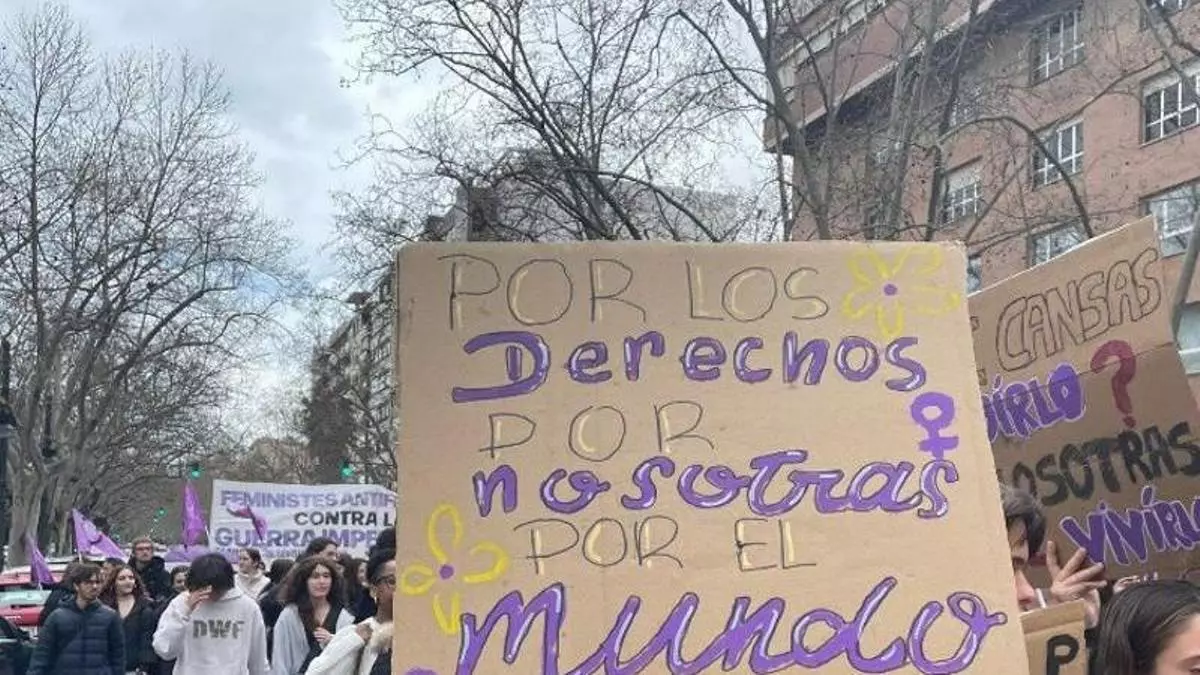 POR LOS
Derechos
POR
nosotras
POR EL
Mundo
CANSAS
VIVIRLO?
VOSOTRAS
VIVIRLO
FEMINISTES
CONTRA
GUERRA
DWF